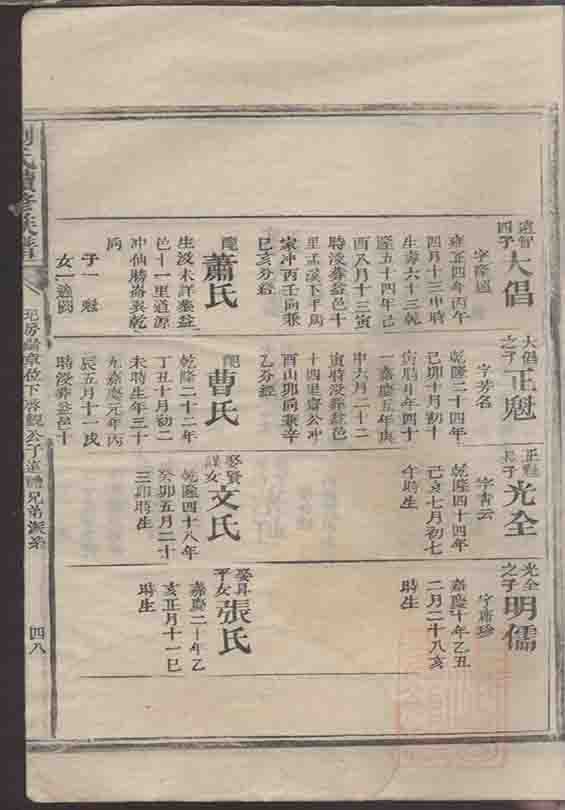 遠智
四子
大倡
字隆國
雍正四年丙午
四月十三申時
生壽六十三乾
隆五十四年己
酉八月十三寅
時沒葬益邑十
里孟溪下千局
家冲丙壬向兼
巳亥分經
配
蕭氏
生沒未詳葬益
邑十一里道源
冲仙勝崙巽乾
向
子一 魁
女一適閻
大倡
之子
正魁
字芳名
乾隆二十四年
己卯十月初十
寅時生年四十
一嘉慶五年庚
申六月二十二
寅時沒葬益邑
十四里齋公冲
酉山卯向兼辛
乙分經
配
曹氏
乾隆二十二年
丁丑十月初二
未時生年三十
九嘉慶元年丙
辰五月十一戌
時沒葬益邑十
正魁
長子
光全
字青云
乾隆四十四年
己亥七月初七
午時生
娶賢
謀女
文氏
乾隆四十八年
癸卯五月二十
三卯時生
光全
之子
明儒
字席珍
嘉慶十年乙丑
二月二十八亥
時生
娶昇
平女
張氏
嘉慶二十年乙
亥正月十一巳
時生
氏續修族譜
卷
兄弟派系
四八